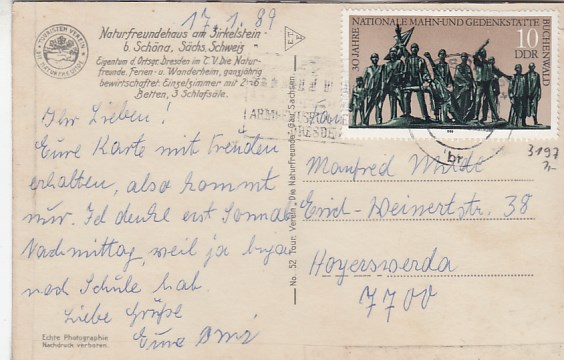 17.1.89
Naturfreundehaus am Zirkelstein
b. Schöna, Sächs. Schweiz
Eigentum d. Ortsgr. Dresden im T. V. Die Natur-
freunde. Ferien- u. Wanderheim, ganzjährig
bewirtschaftet. Einzelzimmer mit 2-6
Betten, 3 Schlafsäle.
TOURISTEN VEREIN
DIE NATURFREUNDE
30 JAHRE NATIONALE MAHN-UND GEDENKSTÄTTE BUCHENWALD
10
DDR
DRESDEN
Ihr Lieben!
Eure Karte mit Freuden
erhalten, also kommt
nur. Ich denke erst Sonnab.
Nachmittag, weil ja
noch Schule hat.
Liebe Grüße
Eure Omi
Manfred
Erich-Weinertstr. 38
Hoyerswerda
7700
3197
No. 52 Tour. Verein „Die Naturfreunde" Gau Sachsen
Echte Photographie
Nachdruck verboren.